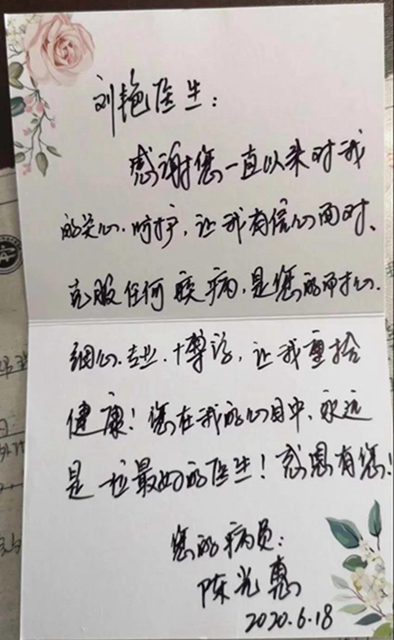 刘艳医生：
感谢您一直以来对我
的关心、呵护，让我有信心面对、
克服任何疾病，是您的耐心、
细心、专业、博学，让我重拾
健康！您在我的心目中，永远
是一位最好的医生！感恩有您！
您的病员：
陈光惠
2020.6.18